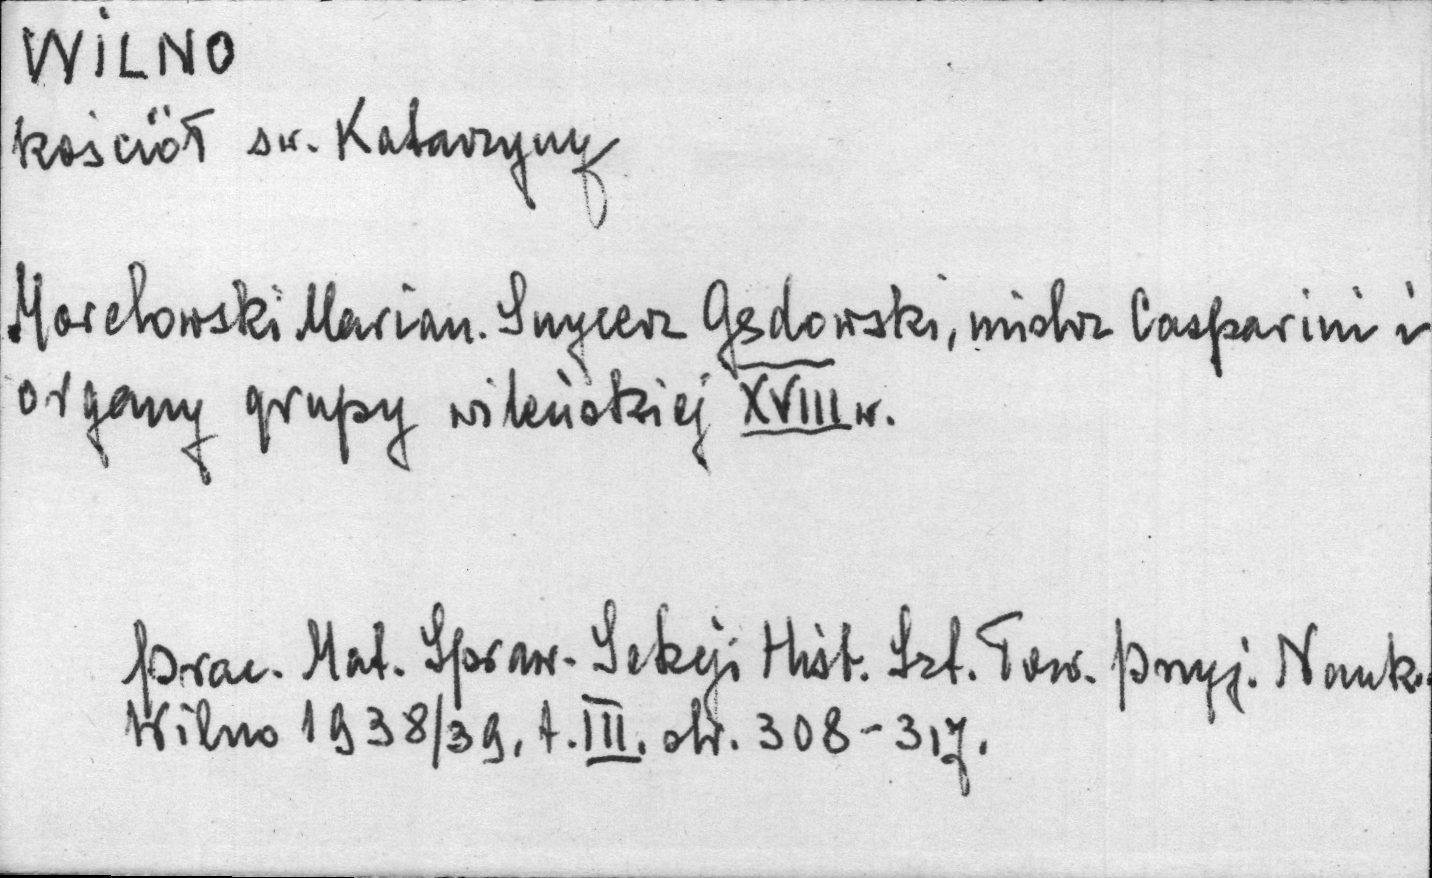 WILNO
kościół św. Katarzyny
Morelowski Marian. Snycerz Gędowski, mistrz Casparini i
organy grupy wileńskiej XVIII w.
Prac. Mat. Spraw. Sekcji Hist. Szt. Tow. Przyj. Nauk.
Wilno 1938/39, t. III. str. 308-317.